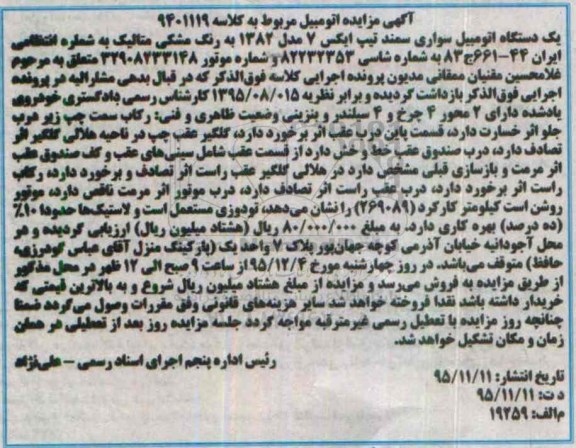 آگهی مزایده اتومبیل مربوط به کلاسه ۹۴۰۱۱۱۹
یک دستگاه اتومبیل سواری سمند تیپ ایکس ۷ مدل ۱۳۸۲ به رنگ مشکی متالیک به شماره انتظامی
ایران ۴۴-۶۶۱ج۸۳ به شماره شاسی ۸۲۲۳۲۳۵۳ و شماره موتور ۳۲۹۰۸۲۳۳۱۴۸ متعلق به مرحوم
غلامحسین مقنیان ممقانی مدیون پرونده اجرایی کلاسه فوق‌الذکر که در قبال بدهی مشارالیه در پرونده
اجرایی فوق‌الذکر بازداشت گردیده و برابر نظریه ۱۳۹۵/۰۸/۰۱۵ کارشناس رسمی دادگستری خودروی
یادشده دارای ۲ محور ۴ چرخ و ۴ سیلندر و بنزینی وضعیت ظاهری و فنی: رکاب سمت چپ زیر درب
جلو اثر خسارت دارد، قسمت پایین درب عقب اثر برخورد دارد، گلگیر عقب چپ در ناحیه هلالی گلگیر اثر
تصادف دارد، درب صندوق عقب خط و خش دارد از قسمت عقب شامل سینی‌های عقب و کف صندوق عقب
اثر مرمت و بازسازی قبلی مشخص دارد در هلالی گلگیر عقب راست اثر تصادف و برخورد دارد، رکاب
راست اثر برخورد دارد، درب عقب راست اثر تصادف دارد، درب موتور اثر مرمت ناقص دارد، موتور
روشن است کیلومتر کارکرد (۲۶۹۰۸۹) را نشان می‌دهد، تودوزی مستعمل است و لاستیک‌ها حدودا ۱۰٪
(ده درصد) بهره کاری دارد، به مبلغ ۸۰/۰۰۰/۰۰۰ ریال (هشتاد میلیون ریال) ارزیابی گردیده و در
محل آجودانیه خیابان آذرمی کوچه جهان‌پور پلاک ۷ واحد یک (پارکینگ منزل آقای عباس گودرزی،
حافظ) متوقف می‌باشد، در روز چهارشنبه مورخ ۹۵/۱۲/۴ از ساعت ۹ صبح الی ۱۲ ظهر در محل مذکور
از طریق مزایده به فروش می‌رسد و مزایده از مبلغ هشتاد میلیون ریال شروع و به بالاترین قیمتی که
خریدار داشته باشد نقدا فروخته خواهد شد سایر هزینه‌های قانونی وفق مقررات وصول می‌گردد ضمنا
چنانچه روز مزایده با تعطیل رسمی غیرمترقبه مواجه گردد جلسه مزایده روز بعد از تعطیلی در همان
زمان و مکان تشکیل خواهد شد.
رئیس اداره پنجم اجرای اسناد رسمی – علی‌نژاد
تاریخ انتشار: ۹۵/۱۱/۱۱
د ت: ۹۵/۱۱/۱۱
م‌الف: ۱۹۲۵۹